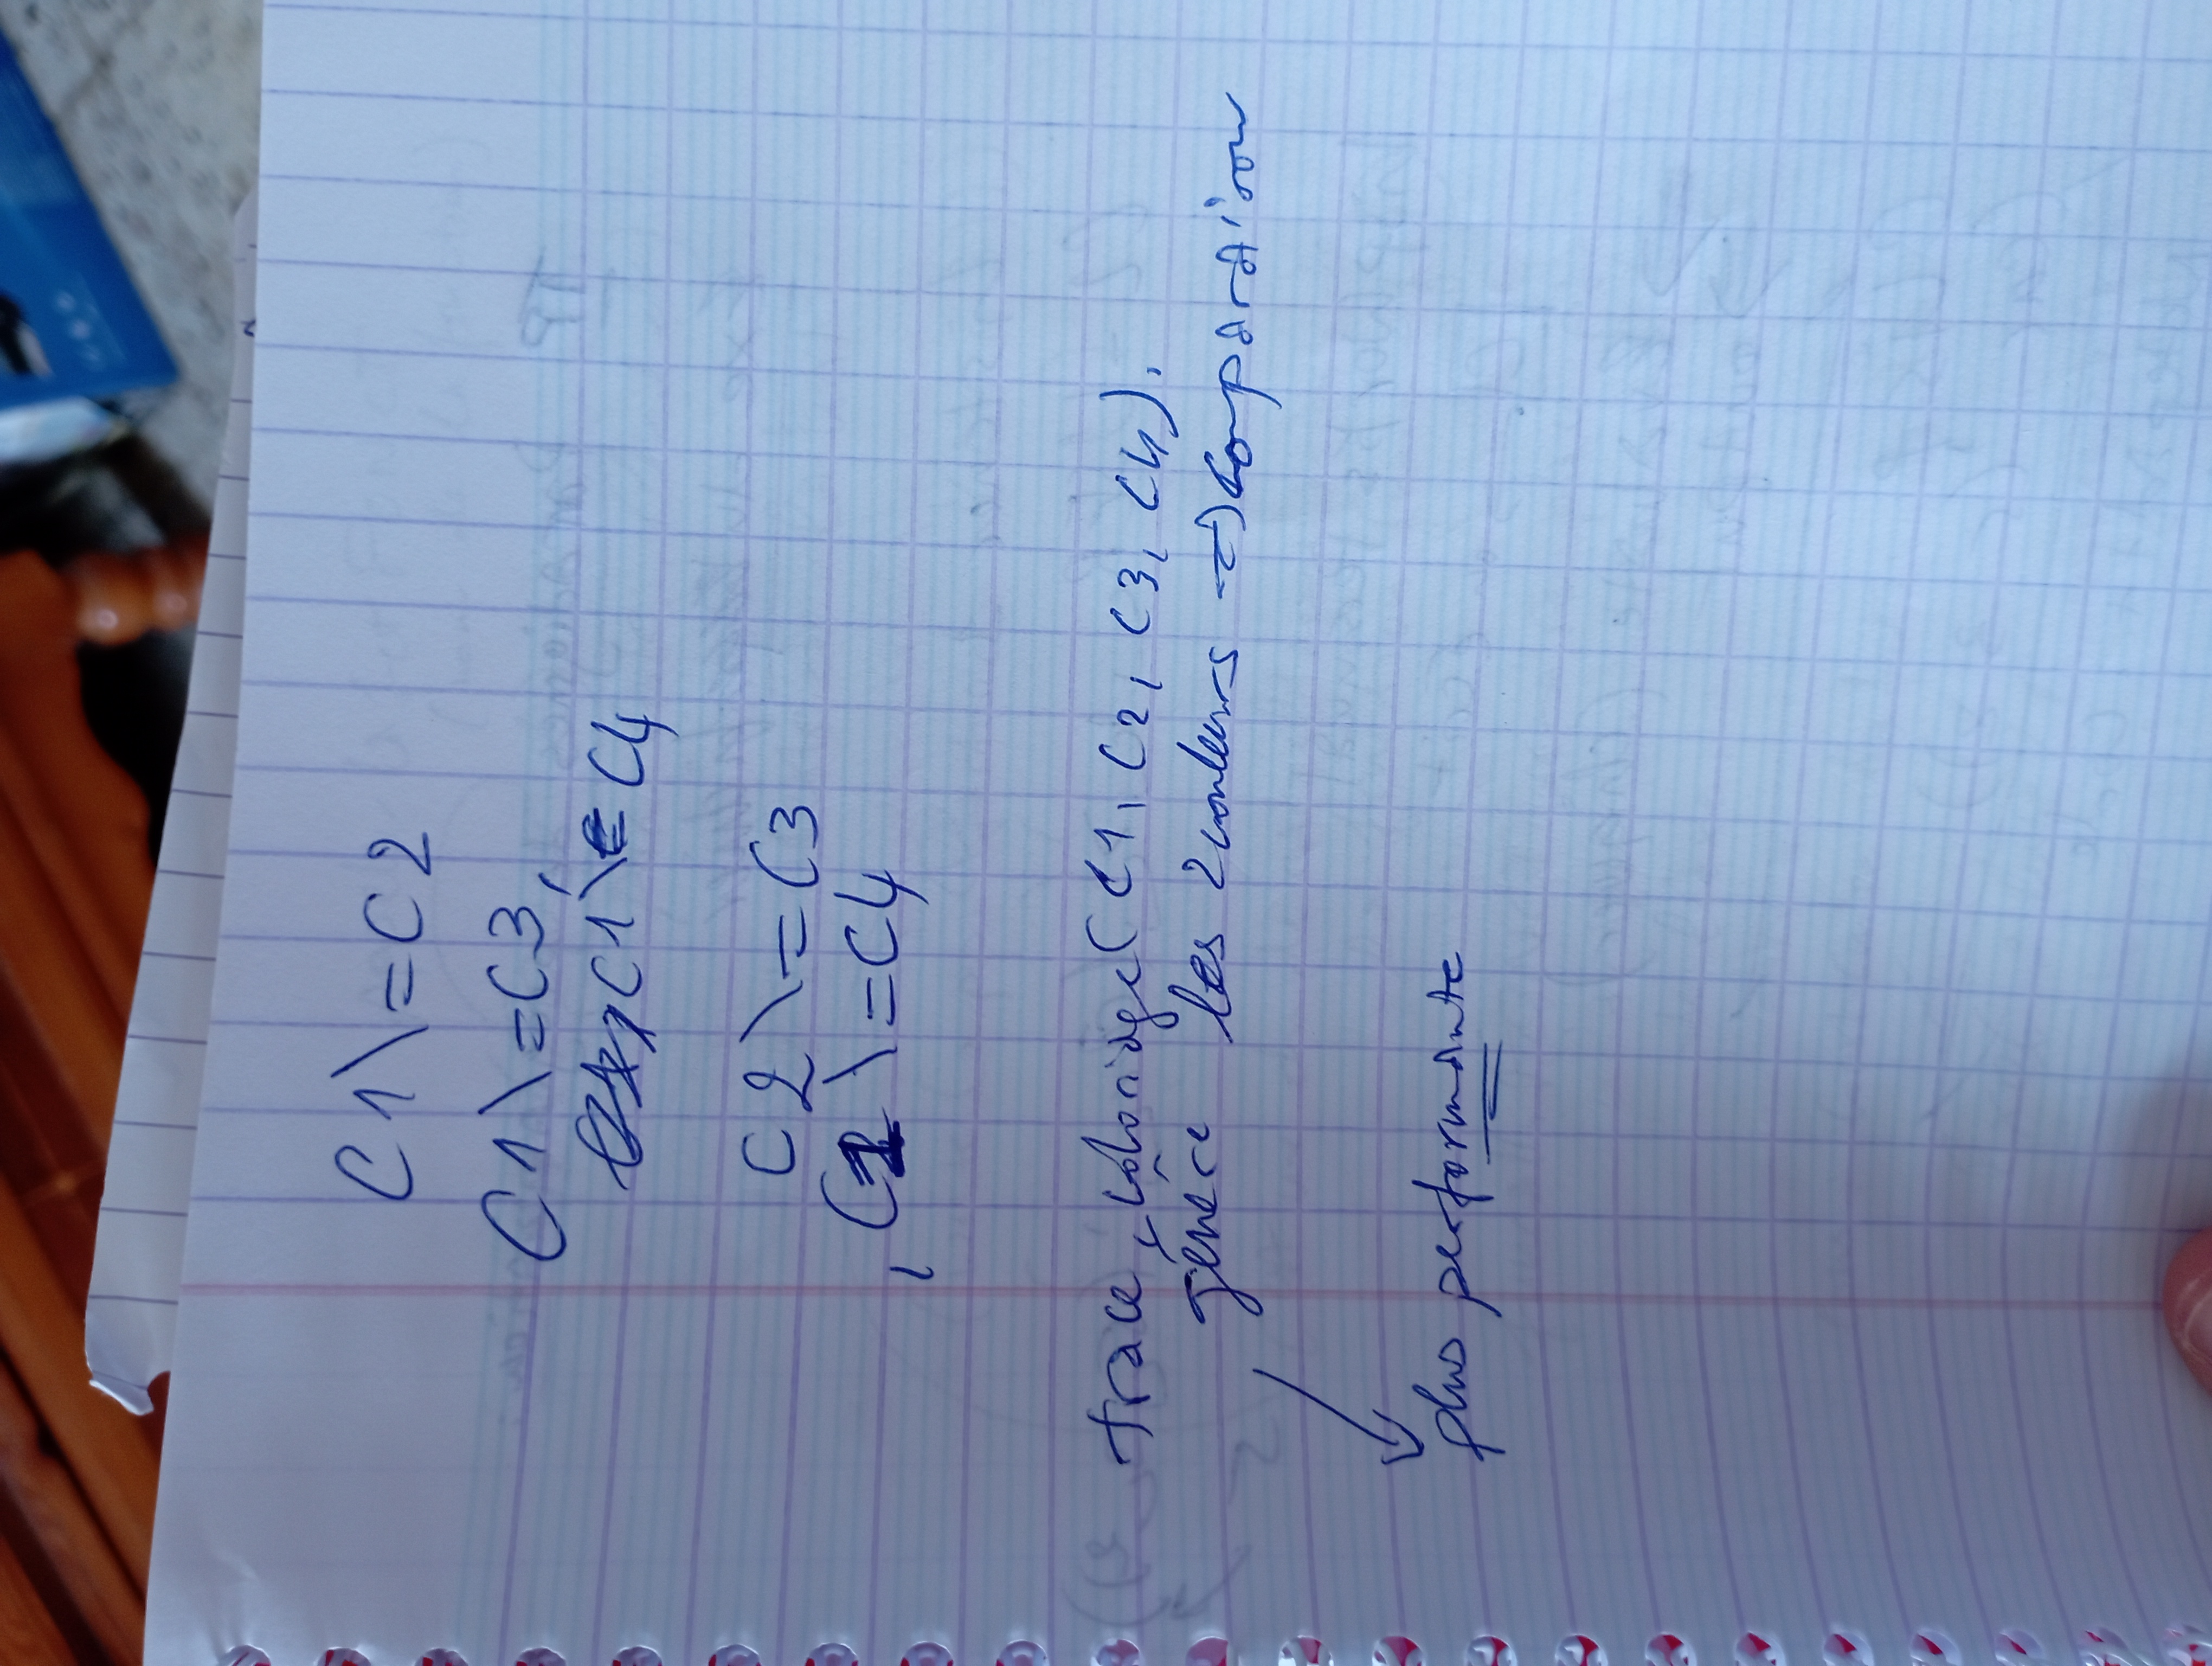 C1\=C2
C1\=C3,
C1\= C4
C2\=C3
, C2\=C4
trace, coloriage(C1, C2, C3, C4).
génère les 2 couleurs => comparaison
plus performante